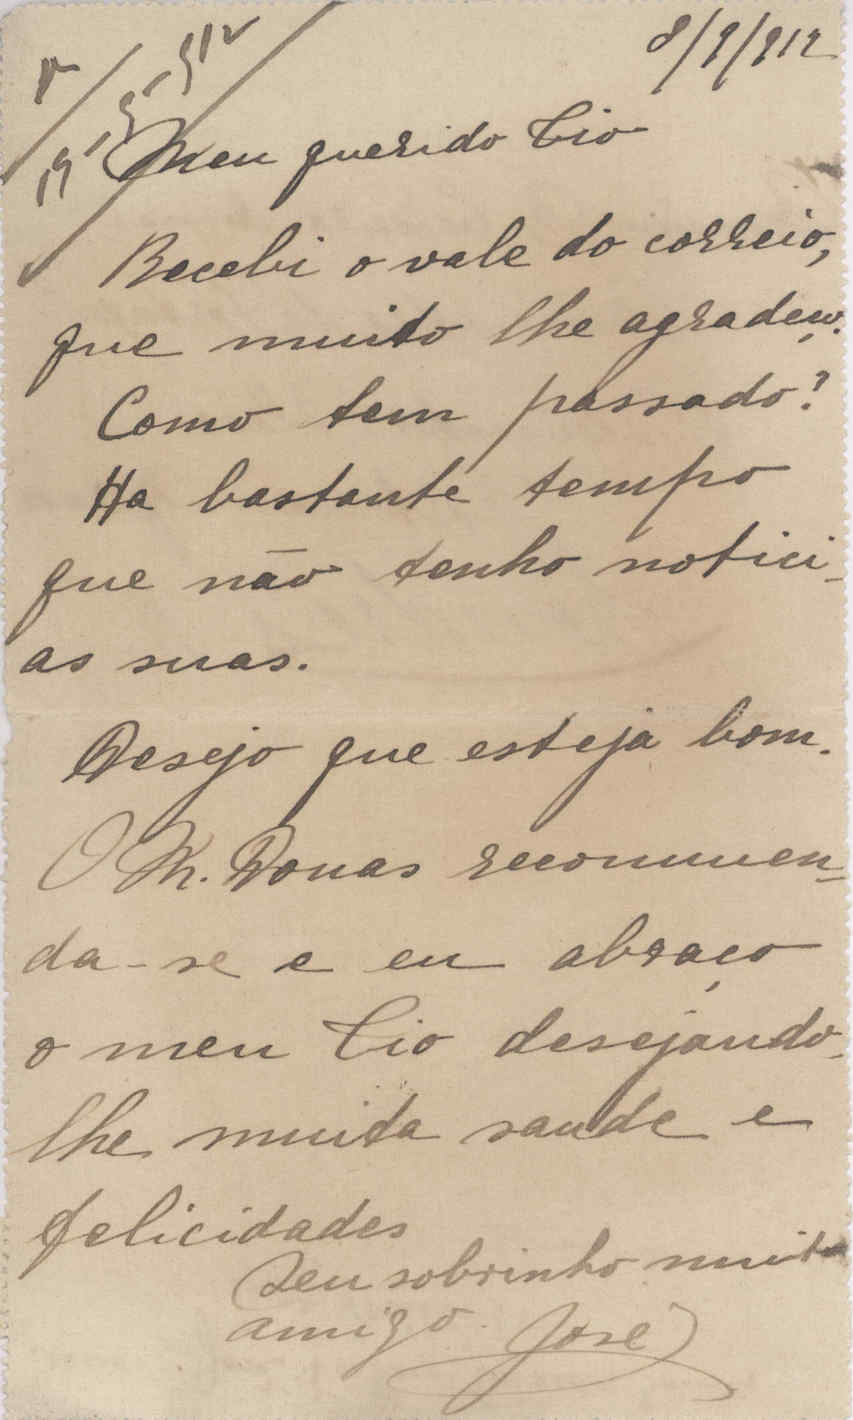 8/9/912
Meu querido Tio
Recebi o vale do correio,
que muito lhe agradeço.
Como tem passado?
Ha bastante tempo
que não tenho notici-
as suas.
Desejo que esteja bom.
O M. Donas recommen-
da-se e eu abraço
o meu Tio desejando-
lhe muita saude e
felicidades
Seu sobrinho muito
amigo José